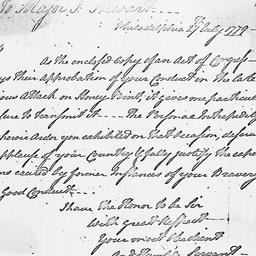 To Major J. Stewart
Philadelphia 27 July 1779
As the enclosed Copy of an Act of Congress
ys their approbation of your Conduct in the late
ious Attack on Stoney Point, it gives me particular
sure to transmit it. The Personal Intrepidity
heroic Ardor you exhibited on that occasion, deserv
applause of your Country & fully justify the expe
ns caused by former Instances of your Bravery
Good Conduct
I have the Honor to be Sir
With great Respect
Your most Obedient
Humble Servant